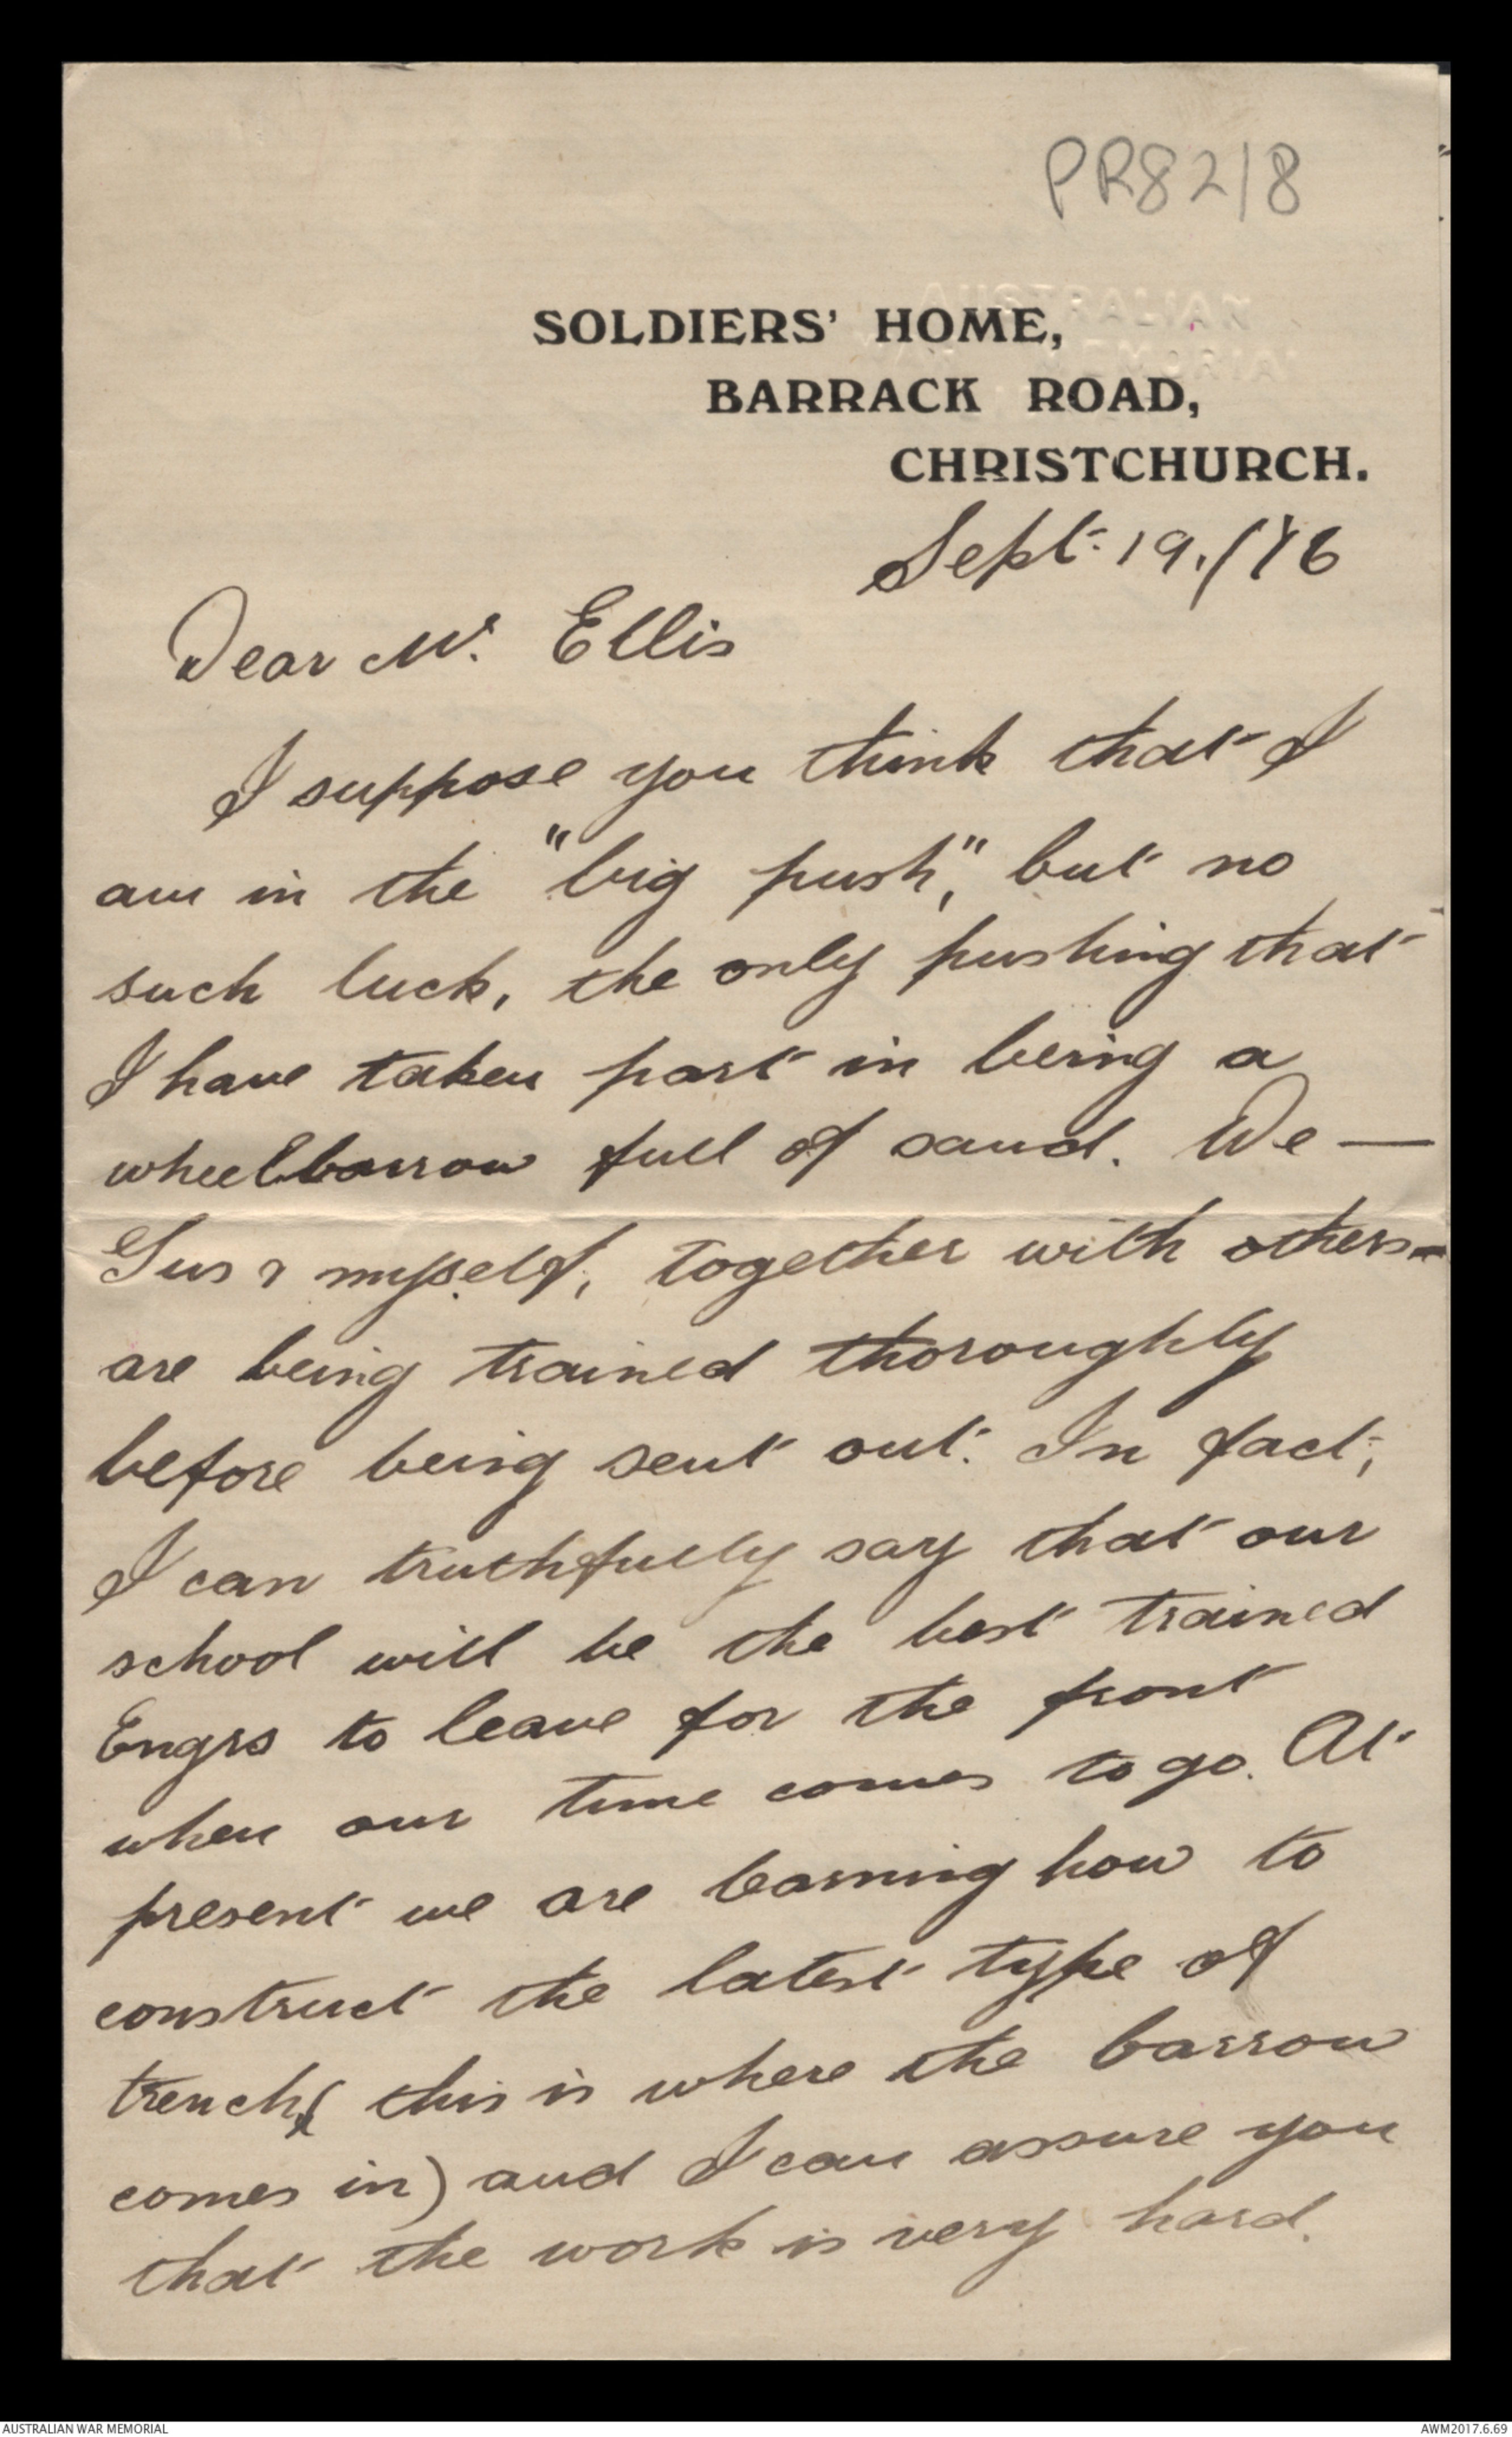 PR82/8
SOLDIERS' HOME,
BARRACK ROAD,
CHRISTCHURCH.
Sept. 19./16
Dear Mr. Ellis
I suppose you think that I
am in the "big push", but no
such luck, the only pushing that
I have taken part in being a
wheelbarrow full of sand. We —
Gus & myself, together with others —
are being trained thoroughly
before being sent out. In fact,
I can truthfully say that our
school will be the best trained
Engrs to leave for the front
when our time comes to go. At
present we are learning how to
construct the latest type of
trench, (this is where the barrow
comes in) and I can assure you
that the work is very hard.
AUSTRALIAN WAR MEMORIAL
AWM2017.6.69